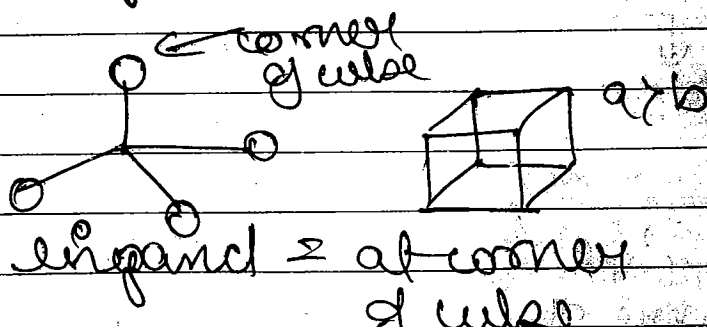 ← corner
of cube
a>b
lingand = at corner
of cube